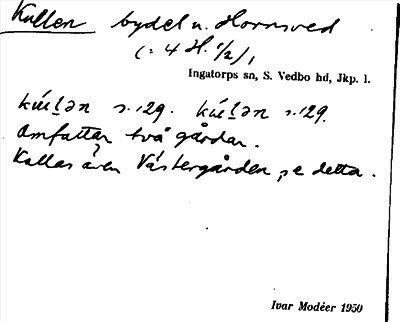 Kullen bydel u. Hornsved
(: 4 H. 1/2),
Ingatorps sn, S. Vedbo hd, Jkp. l.
s. 129. s. 129.
Omfattar två gårdar.
Kallas även Västergården, se detta.
Ivar Modéer 1950